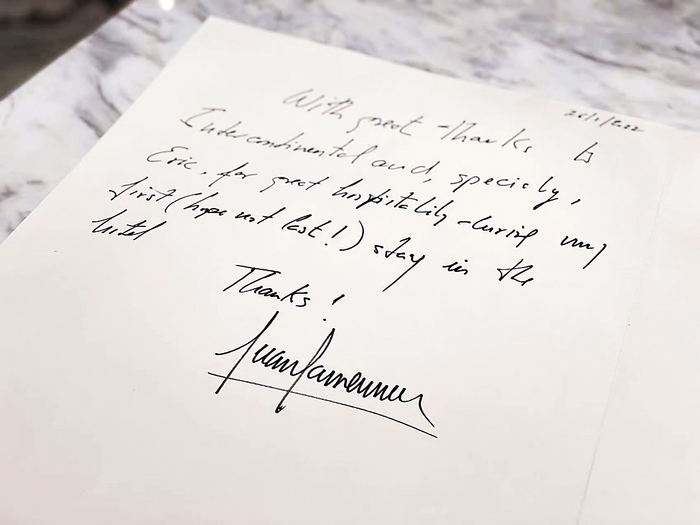 With great thanks to
Intercontinental and, specialy,
Eric, for great hospitality during my
first (hope not last!) stay in the
hotel
Thanks!
Juan